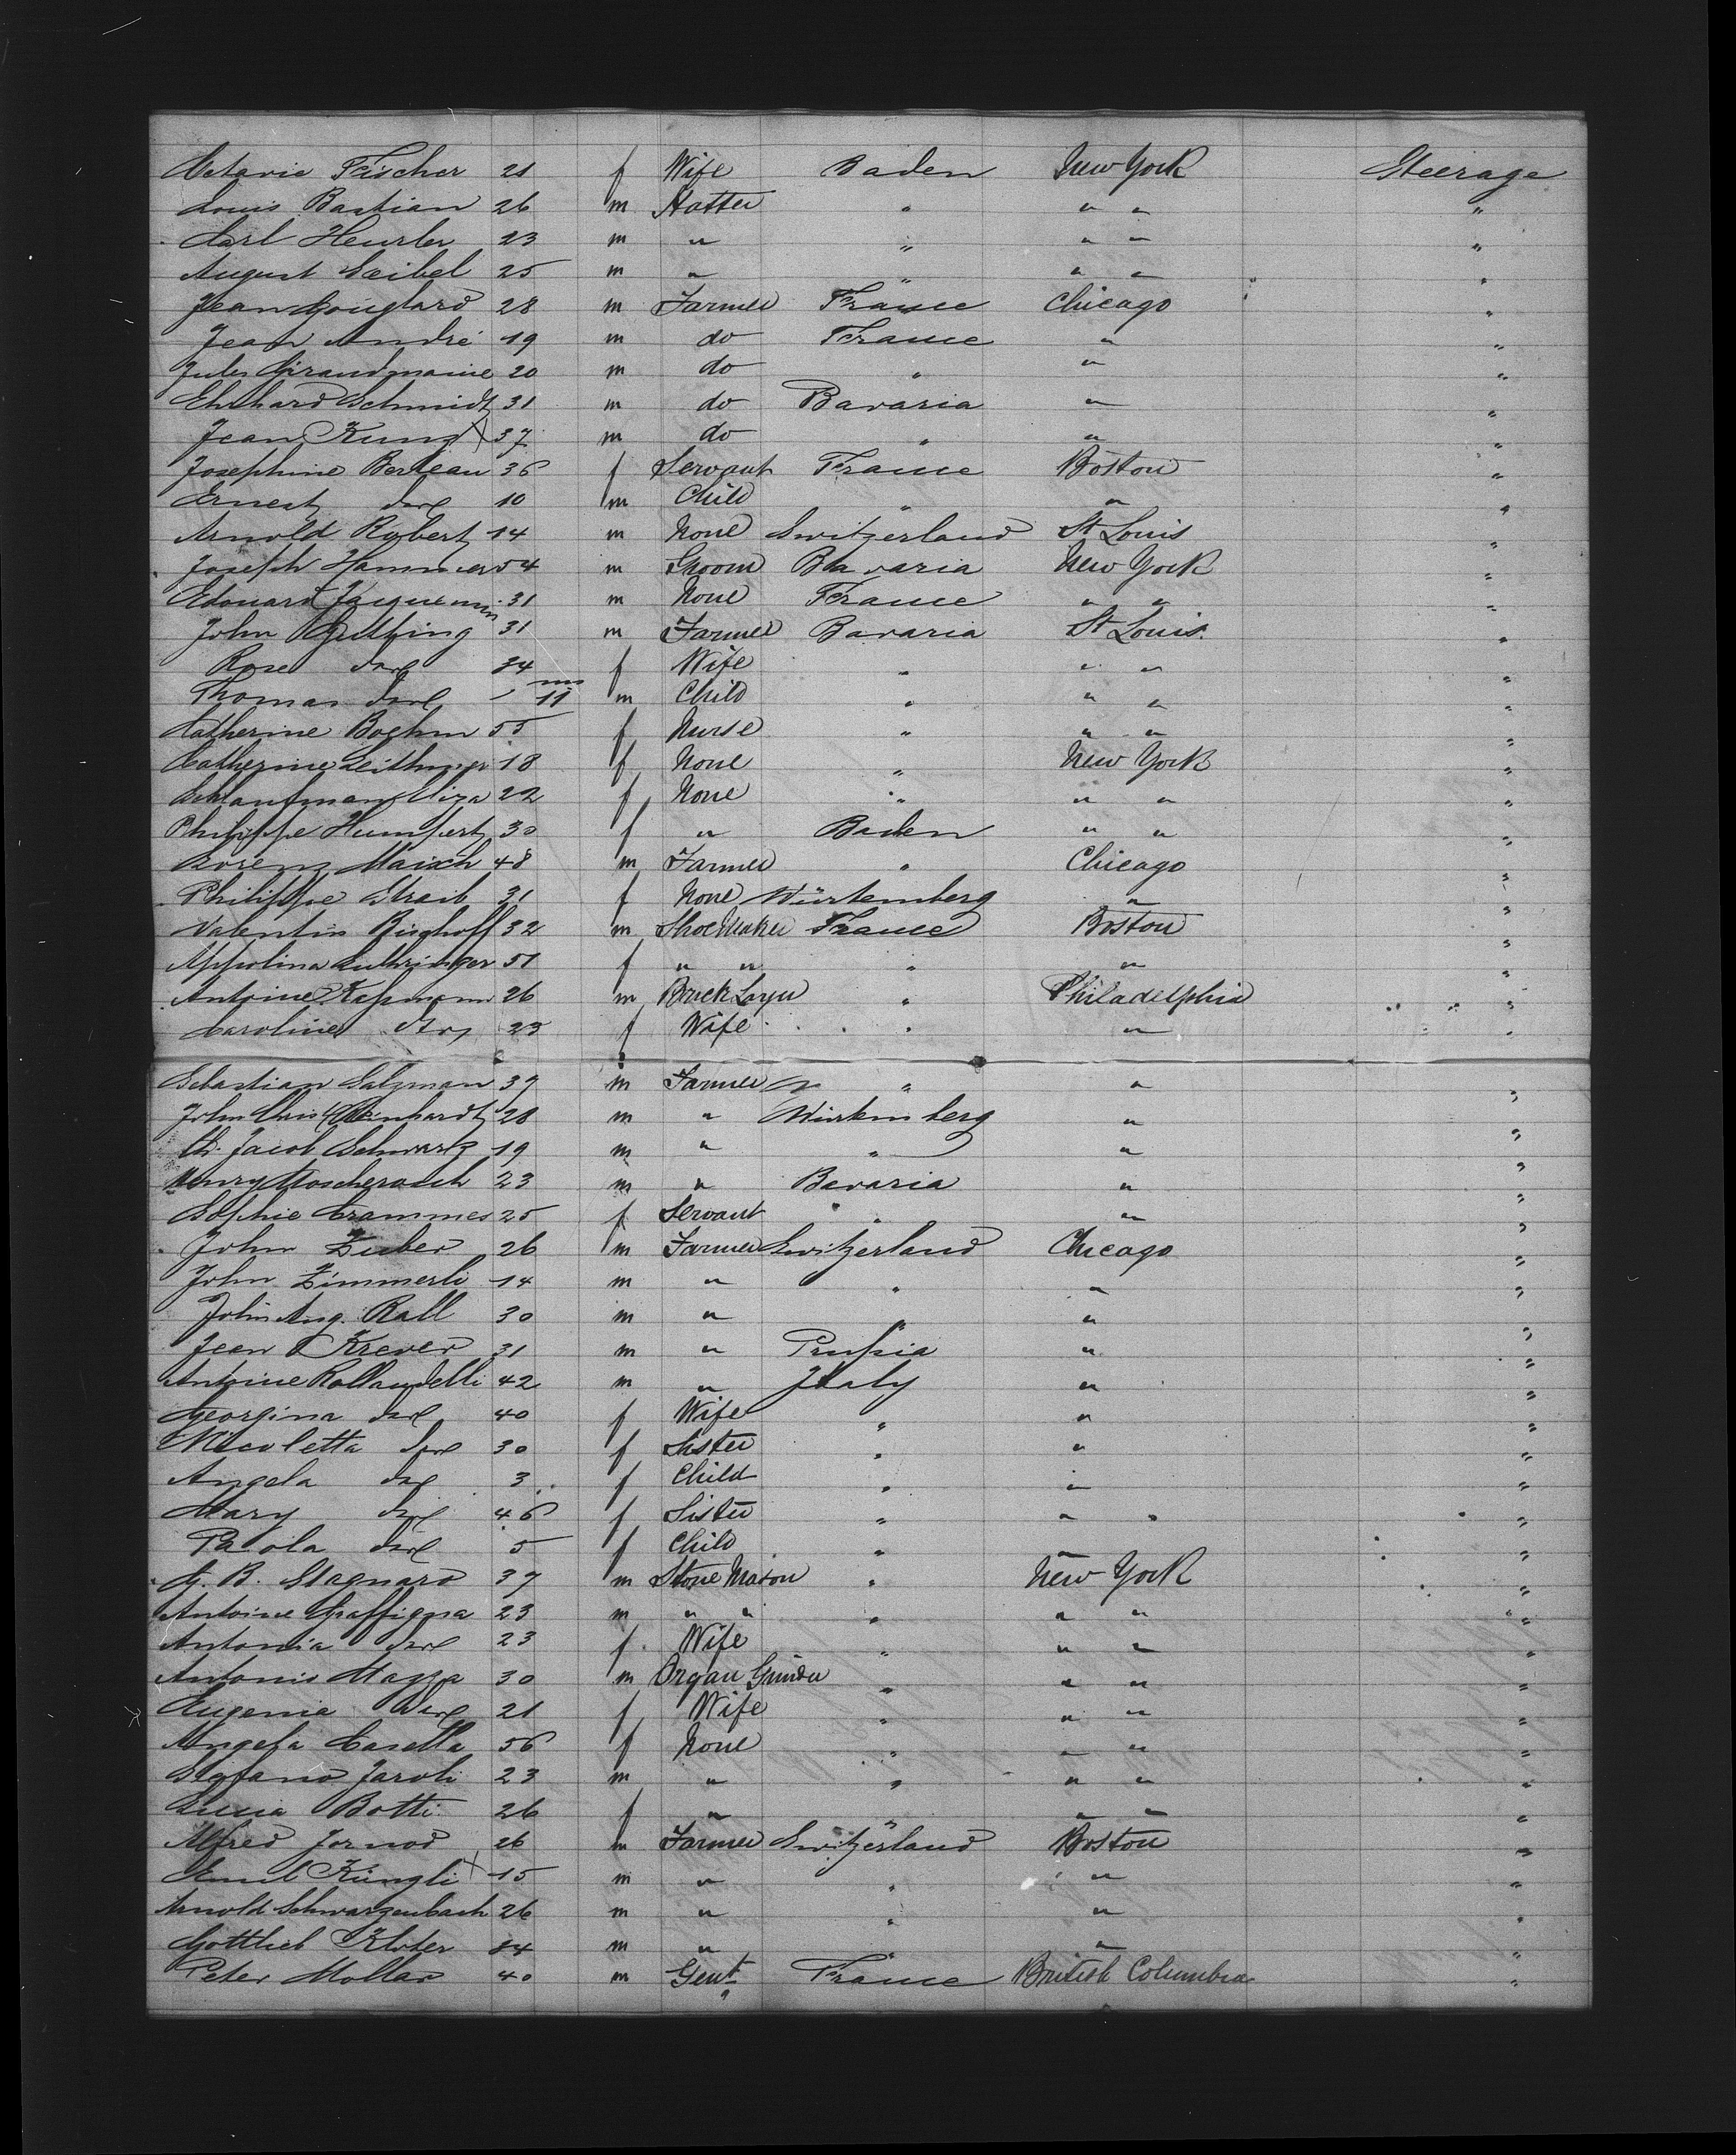 Octavie Fischer 21 f Wife Baden New York Steerage
Louis Bastian 26 m Hatter " " " "
Carl Heusler 23 m " " " " "
August Seibel 25 m " " " " "
Jean Gouglard 28 m Farmer France Chicago "
Jean André 19 m do France " "
Jules Girandmaine 20 m do " " "
Ehrhard Schmidt 31 m do Bavaria " "
Jean Kung X 37 m do " " "
Josephine Berteau 36 f Servant France Boston "
Ernest do 10 m Child " " "
Arnold Robert 14 m None Switzerland St Louis "
Joseph Hammer 54 m Groom Bavaria New York "
Edouard Jacquemin 31 m None France " " "
John Gutting 31 m Farmer Bavaria St Louis. "
Rose do 34 f Wife " " " "
Thomas do - 11 ms m Child " " " "
Catherine Boehm 55 f Nurse " " " "
Catherine 18 f None " New York "
Eliza 22 f None " " " "
Philippe Humpert 30 f " Baden " " "
Maixh 48 m Farmer " Chicago "
Philippe Straib 31 f None Würtemberg " "
Valentin Bischoff 32 m Shoe Maker France Boston "
Appolina Luthringer 51 f " " " " "
Antoine Kassmann 26 m Brick Layer " Philadelphia "
Caroline do 23 f Wife " " "
Sebastian Salzman 39 m Farmer " " "
John Christ Reinhardt 28 m " Würtemberg " "
Ch. Jacob Schwartz 19 m " " " "
Henry Moscherosch 23 m " Bavaria " "
Sophie Crammes 25 f Servant " " "
John Zuber 26 m Farmer Switzerland Chicago "
John Zimmerli 14 m " " " "
John Aug. Rall 30 m " " " "
Jean Krever 31 m " Prussia " "
Antoine Rollandelli 42 m " Italy " "
Georgina do 40 f Wife " " "
Nicoletta do 30 f Sister " " "
Angela do 3 f Child " " "
Mary do 46 f Sister " " "
Paola do 5 f Child " " "
G. B. Stagnaro 39 m Stone Mason " New York "
Antoine Graffigna 23 m " " " " " "
Antonia do 23 f Wife " " " "
Antonio Mazza 30 m Organ Grinder " " " "
Eugenie do 21 f Wife " " " "
Angela Casella 56 f None " " " "
Stefano Jaroli 23 m " " " " "
Lucia Botti 26 f " " " " "
Alfred Jornod 26 m Farmer Switzerland Boston "
Emil Küngli X 15 m " " " "
Arnold Schwarzenbach 26 m " " " "
Gottlieb Kloter 34 m " " " "
Peter Mollar 40 m Gent. France British Columbia "